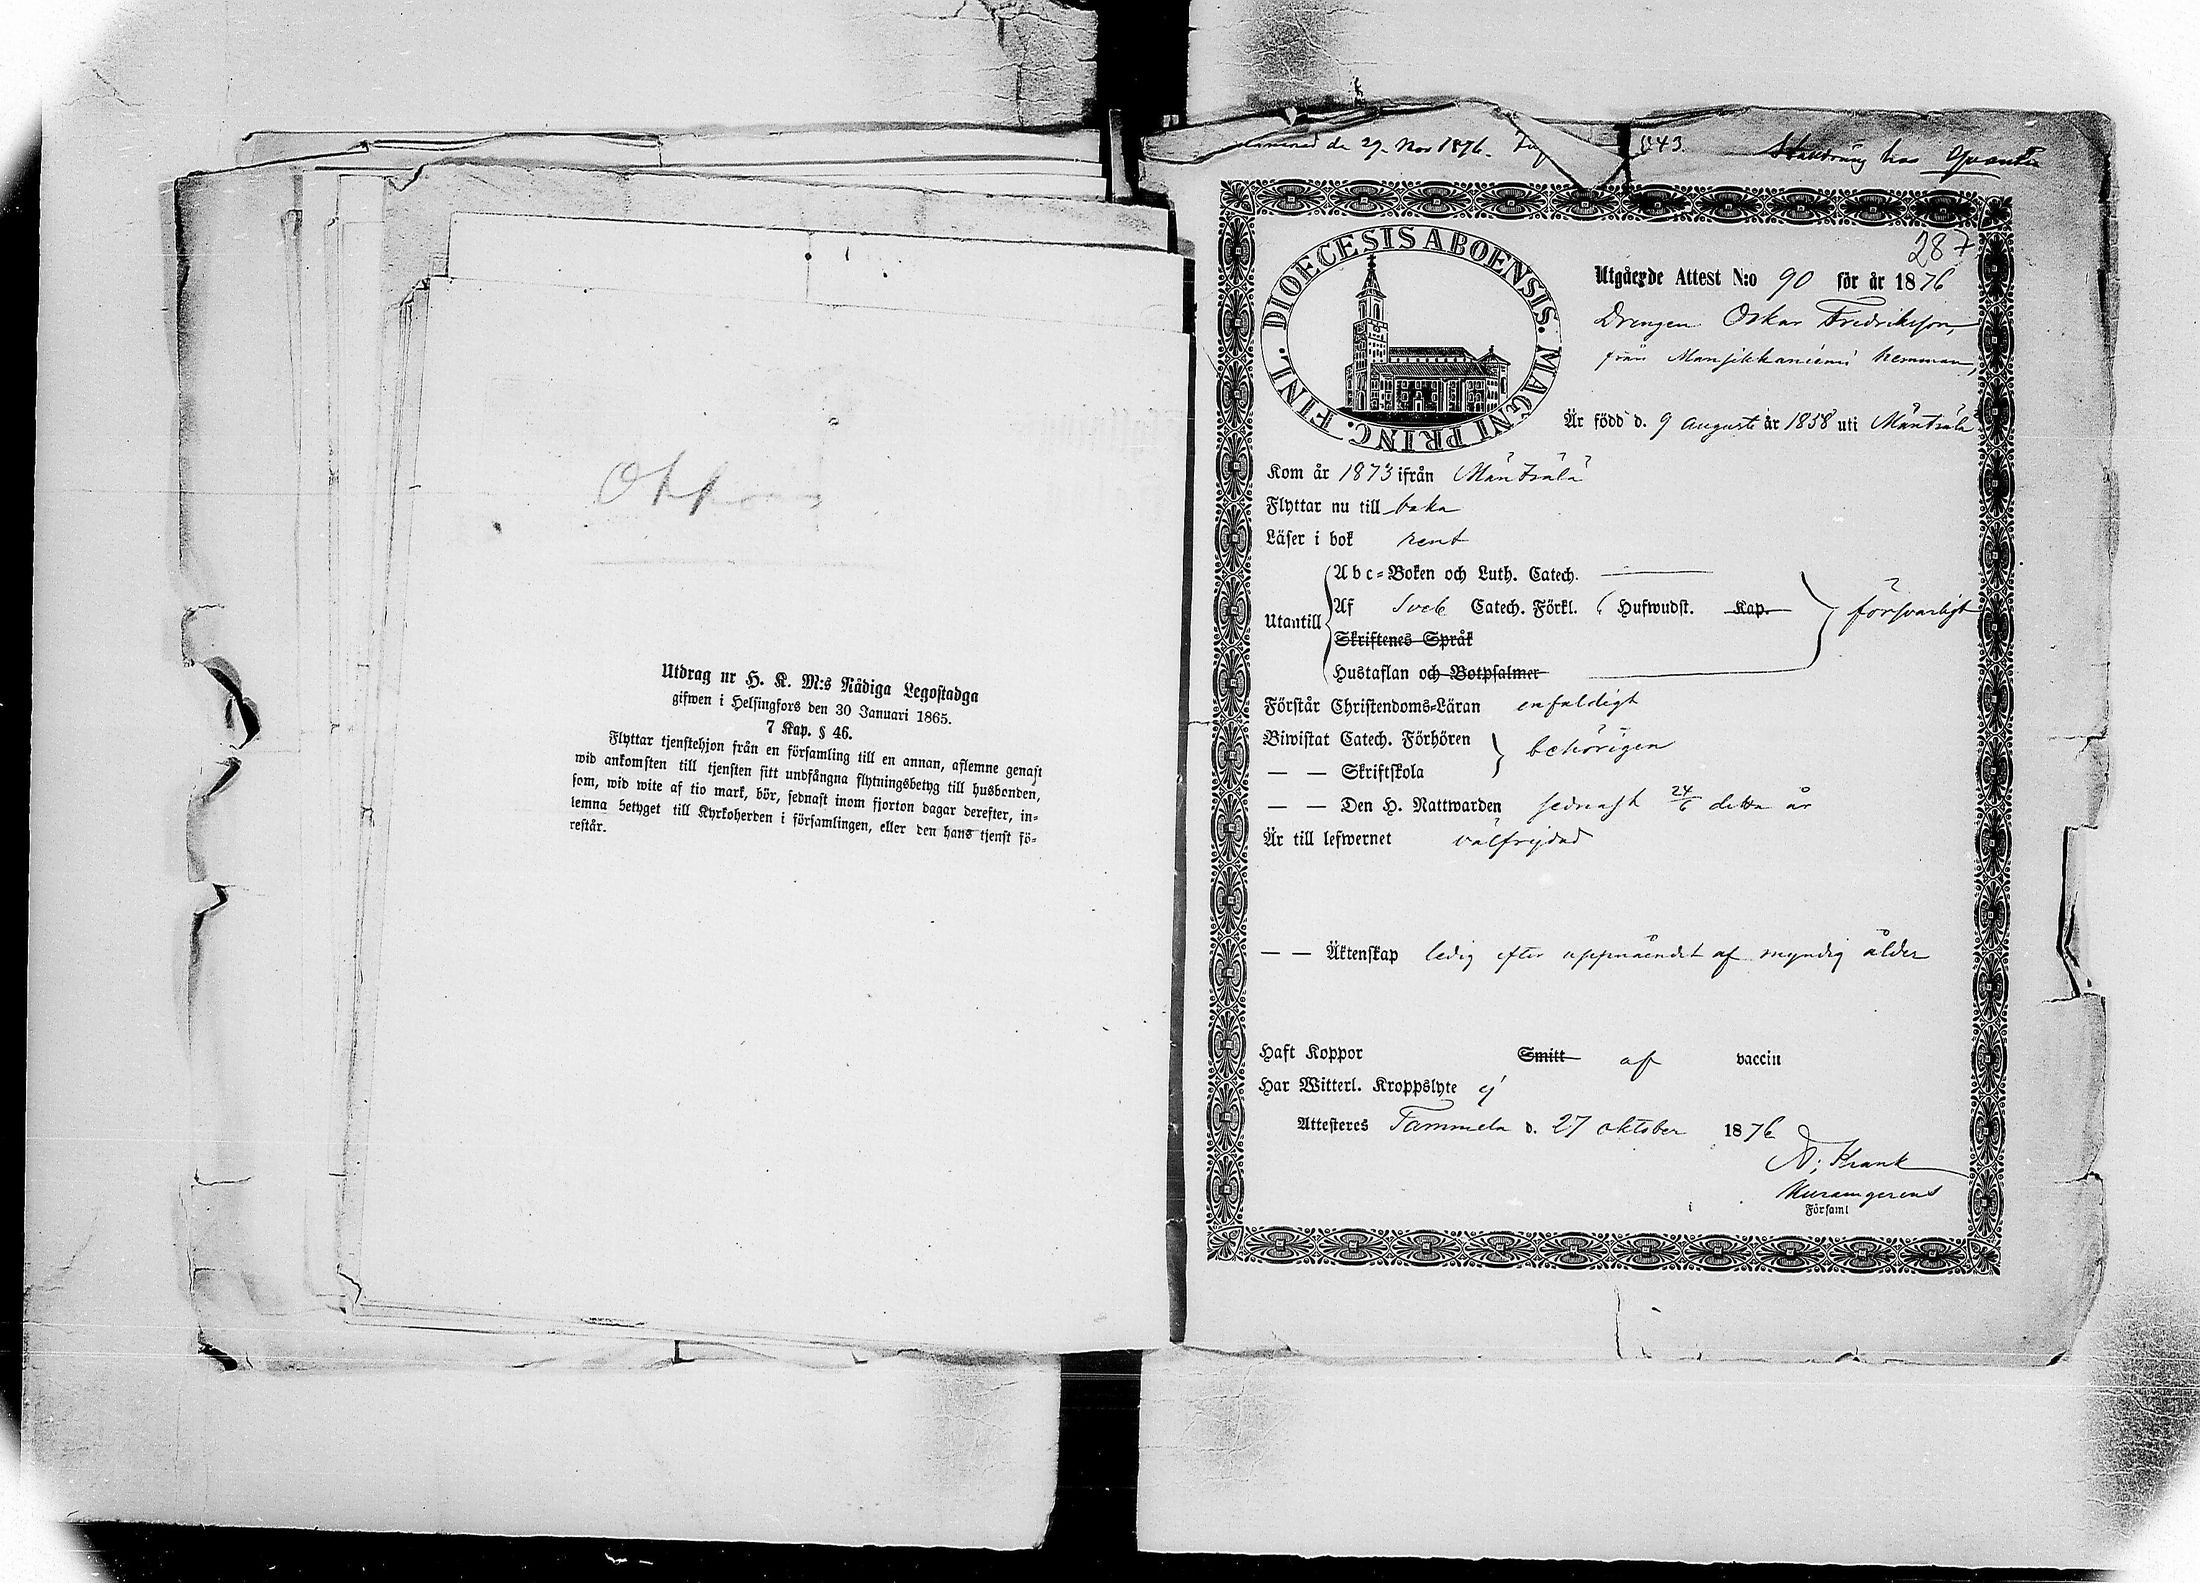 Utdrag ur H. K. M:s Nådiga Legostadga
gifwen i Helsingfors den 30 Januari 1865.
7 Kap. § 46.
Flyttar tjenstehjon från en församling till en annan, aflemne genast
wid ankomsten till tjensten sitt undfångna flytningsbetyg till husbonden,
som, wid wite af tio mark, bör, sednast inom fjorton dagar derefter, in-
lemna betyget till Kyrkoherden i församlingen, eller den hans tjenst fö-
restår.
d. 29 Nov 1876. 043. Stalldräng hos
287
DIOECESIS ABOENSIS. MAGNI PRINC. FINL.
Utgående Attest N:o 90 för år 1876
Drengen Oskar Fredriksson,
från Mansikkaniemi hemman,
Är född d. 9 Augusti år 1858 uti Mäntsälä
Kom år 1873 ifrån Mäntsälä
Flyttar nu till baka
Läser i bok rent
Abc-Boken och Luth. Catech.
Utantill Af Sveb Catech. Förkl. 6 Hufwudst. Kap. försvarligt
Skriftenes Språk
Hustaflan och Botpsalmer
Förstår Christendoms-Läran enfaldigt
Biwistat Catech. Förhören behörigen
— — Skriftskola
— — Den H. Nattwarden sednast 24/6 detta år
Är till lefwernet välfrejdad
— — Äktenskap ledig efter uppnåendet af myndig ålder
Haft Koppor Smitt af vaccin
Har Witterl. Kroppslyte ej
Attesteres Tammela d. 27 oktober 1876
Krank
Församl